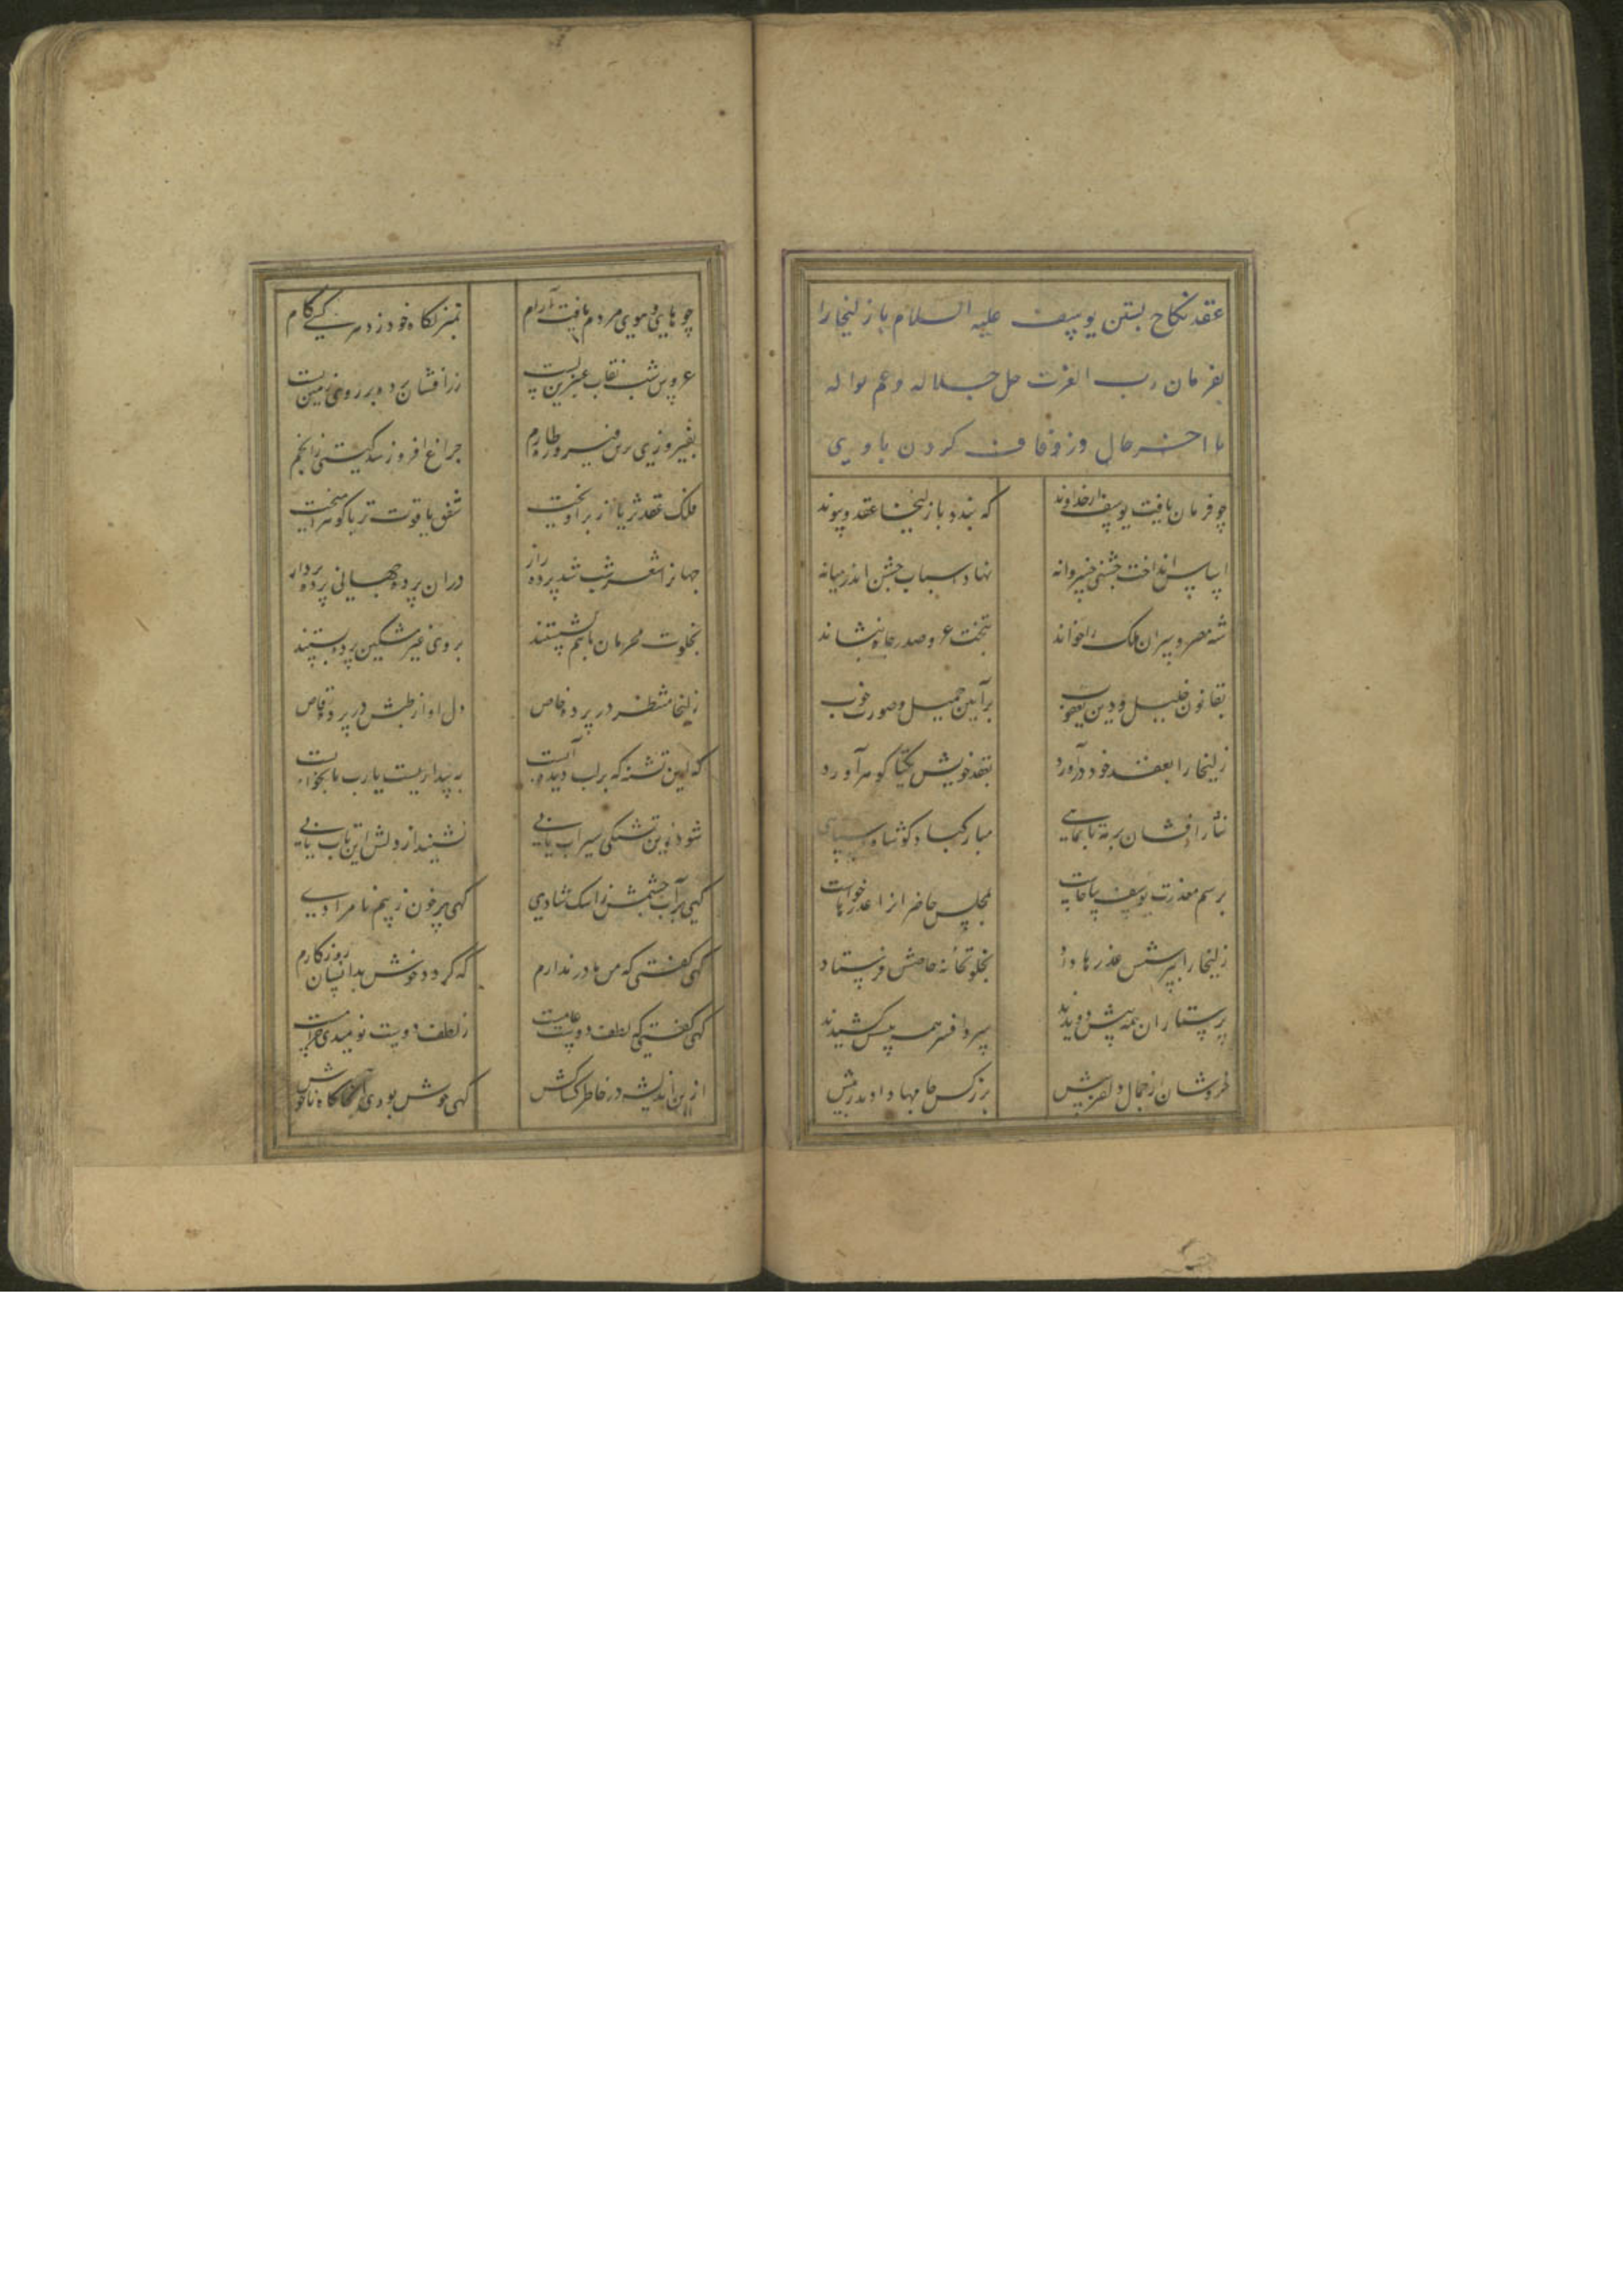 عقد نکاح بستن یوسف علیه السلام با زلیخا را
بفرمان رب العزت جل جلاله وعم نواله
با اخر حال وزفاف کردن با وی
چو فرمان یافت یوسف از خداوند که بندد با زلیخا عقد و پیوند
اساس انداخت جشنی خسروانه نهاد اسباب جشن اندر میانه
شه مصر و سران ملک را خواند بتخت عز و صدر جاه بنشاند
بقانون خلیل و دین یعقوب بر آیین جمیل و صورت خوب
زلیخا را بعقد خود درآورد بعقد خویش یکتا گوهر آورد
نثار افشان برو مه تا بماهی مبارکباد گو شاه و سپاهی
برسم معذرت یوسف بپا خاست بمجلس حاضرانرا عذرها خواست
زلیخا را بپرسش عذرها داد بخلوتخانه خاصش فرستاد
پرستاران همه پیشش دویدند سر و افسر همه پیشش کشیدند
خروشان از جمال دلفریبش بزرکش جامها دادند زیبش
چو های وهوی مردم یافت آرام بمنزلگاه خود زد هر کسی گام
عروس شب نقاب عنبرین بست زرافشان پرده بر روی زمین بست
بفیروزی برین فیروزه طارم چراغ افروز شد گیتی ز انجم
فلک عقد ثریا از بر آویخت شفق یاقوت تر با گوهر آمیخت
جهانرا شعر شب شد پرده راز در ان پرده جهانی پرده پرداز
بخلوت محرمان باهم نشستند بروی غیر مشکین پرده بستند
زلیخا منتظر در پرده خاص دل او از طپش در پرده رقاص
که این تشنه که بر لب دیده آبست به بیداریست یارب یا بخوابست
شود زین تشنگی سیراب یا نی نشیند از دلش این تاب یا نی
گهی پر آب چشمش ز اشک شادی گهی پر خون ز بیم نامرادی
گهی گفتی که من باور ندارم که گردد خوش بدانسان روزگارم
گهی گفتی که لطف دوست عامست ز لطف دوست نومیدی حرامست
ازین اندیشه در خاطر کشاکش گهی خوش بودی آنجا گاه ناخوش